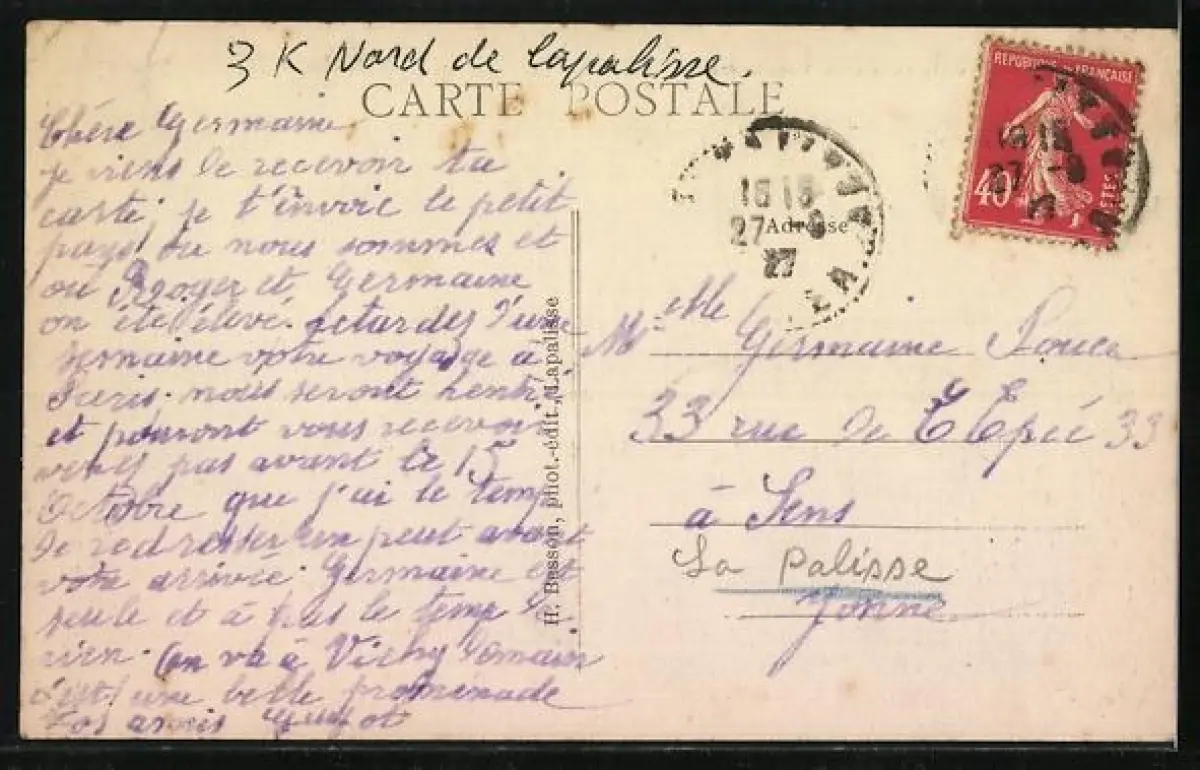 3 K Nord de Lapalisse.
CARTE POSTALE
Chère Germaine
je viens de recevoir ta
carte, je t'envoie le petit
pays ou nous sommes et
ou Roger et Germaine
on été élevé. retardez d'une
semaine votre voyage à
Paris. nous seront rentré
et pouront vous recevoir
venez pas avant le 15
Octobre que j'ai le temp
de redresser un peut avant
votre arrivée. Germaine est
seule et à pas le temp
rien. On va à Vichy demain
c'est une belle promenade
Vos amis
H. Besson, phot.-édit., Lapalisse
REPUBLIQUE FRANÇAISE
40
POSTES
16 15
27 -9
27
Adresse
Melle Germaine
33 rue de L'Epée 33
à Sens
La Palisse
Yonne